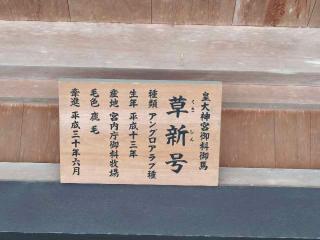 皇大神宮御料御馬
草新号
くさ しん
種類 アングロアラブ種
生年 平成十三年
産地 宮内庁御料牧場
毛色 鹿毛
牽進 平成三十年六月